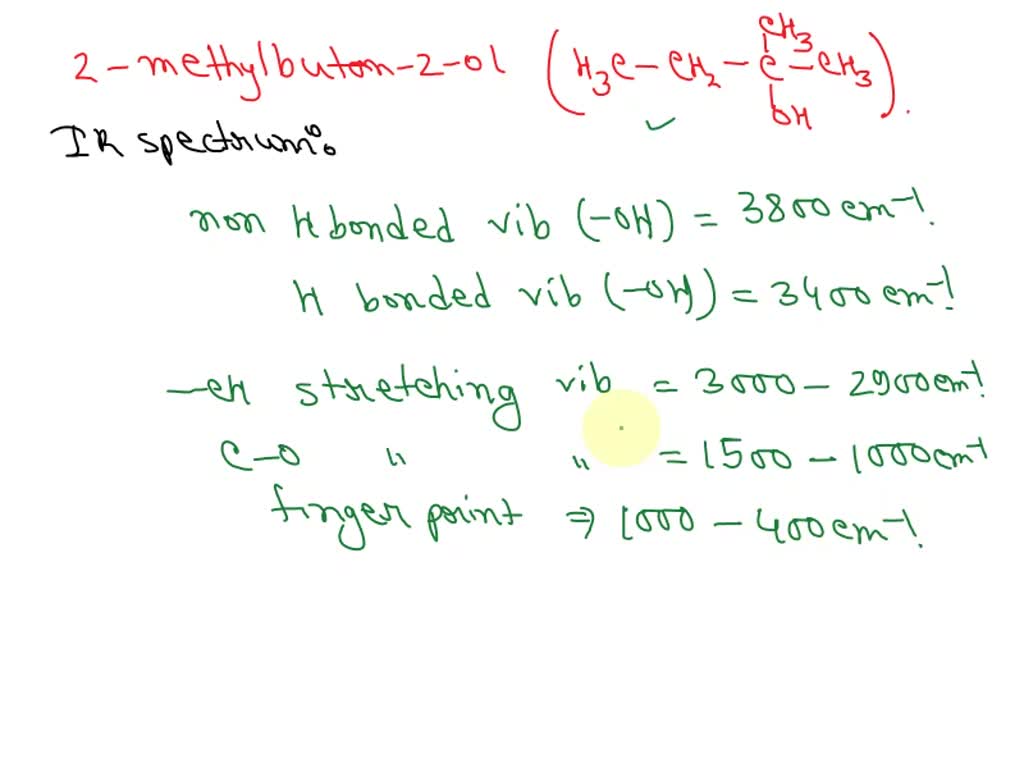 2-methylbutan-2-ol (H3C-CH2-C-CH3).
CH3
OH
IR spectrum:
non H bonded vib (-OH) = 3800 cm-1.
H bonded vib (-OH) = 3400 cm-1.
-CH stretching vib = 3000 - 2900 cm-1.
C-O " " = 1500 - 1000 cm-1
finger point ⇒ 1000 - 400 cm-1.